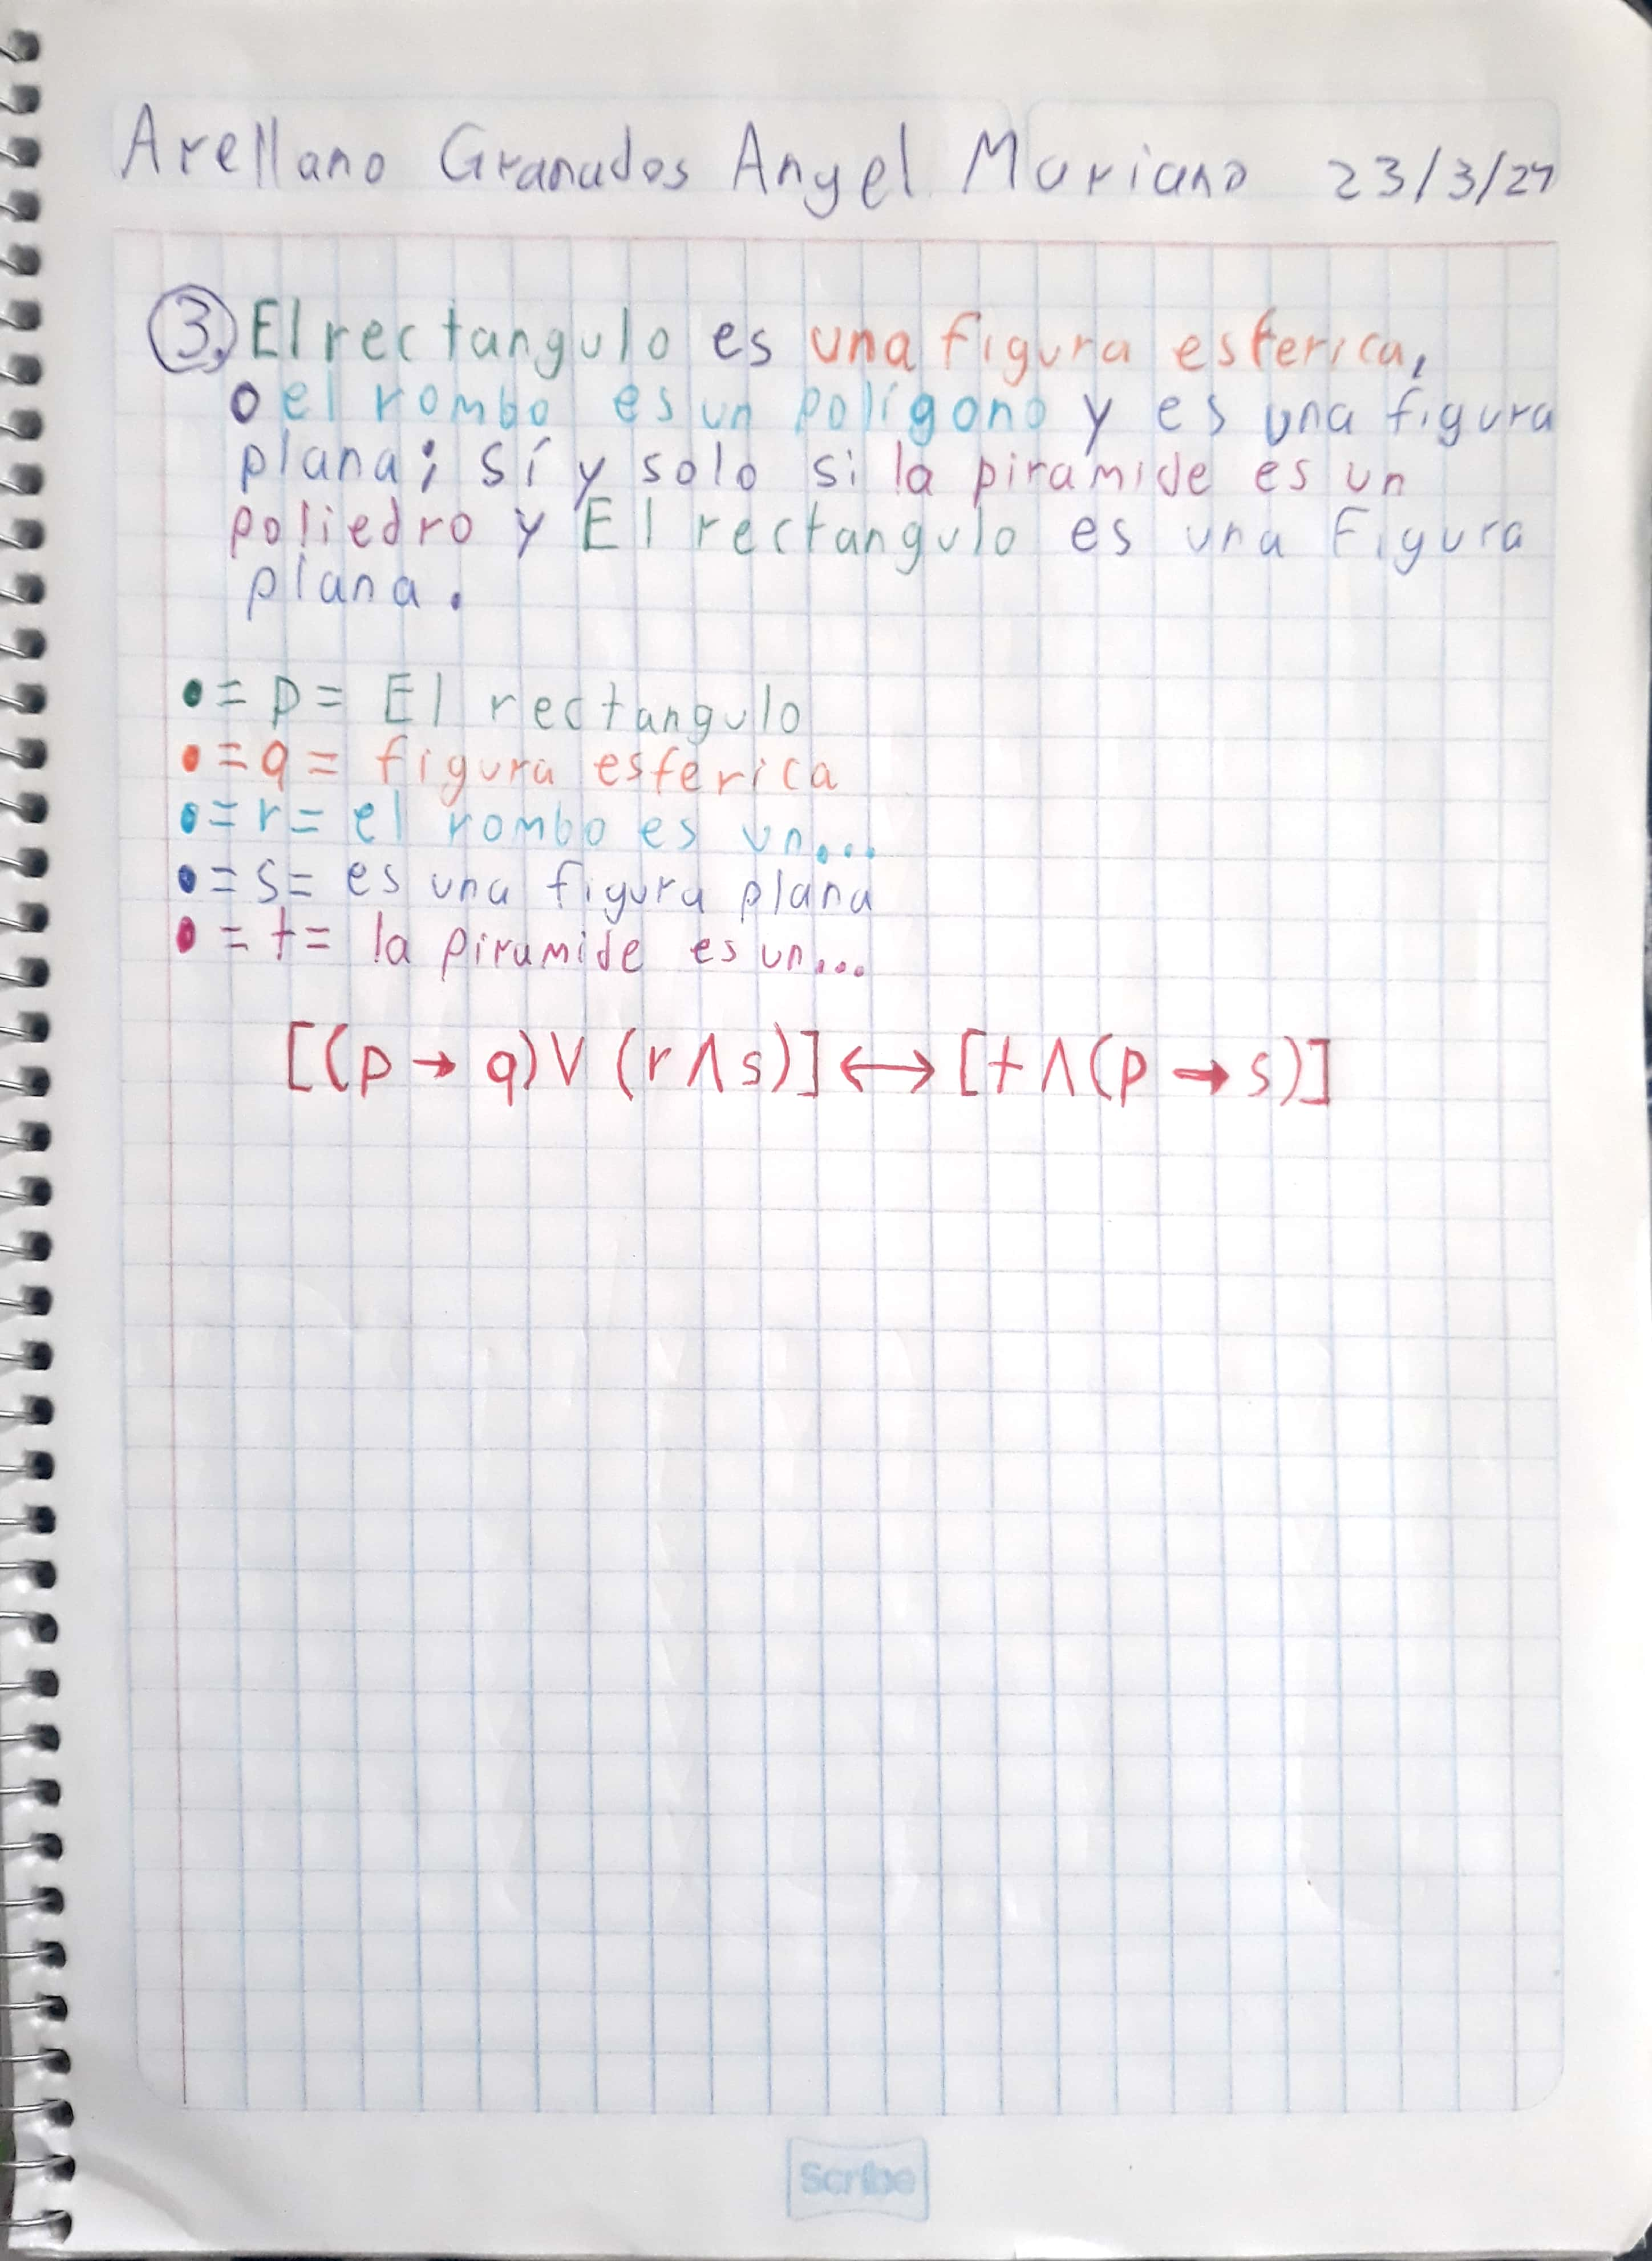 Arellano Granados Angel Mariano 23/3/24
3. El rectangulo es una figura esferica,
o el rombo es un polígono y es una figura
plana; sí y solo si la piramide es un
poliedro y El rectangulo es una Figura
plana.
• = p = El rectangulo
• = q = figura esferica
• = r = el rombo es un...
• = s = es una figura plana
• = t = la piramide es un...
[(p → q) ∨ (r ∧ s)] ↔ [t ∧ (p → s)]
Scribe